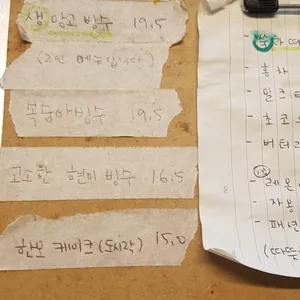 생 망고 빙수 19.5
(2인 메뉴입니다)
복숭아빙수 19.5
고소한 현미 빙수 16.5
한모 케이크 (도시락) 15.0
홍차
초코
버터
레몬
자몽
패션
(따뜻